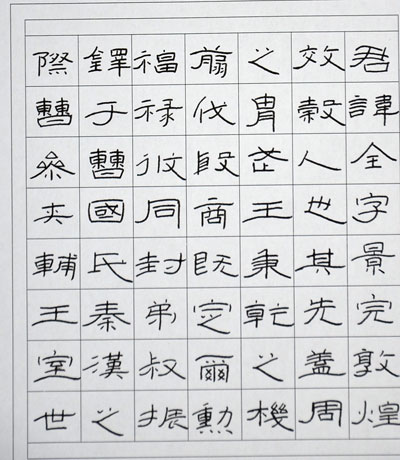 君諱全字景完敦煌
效穀人也其先蓋周
之胄武王秉乾之機
翦伐殷商既定爾勳
福祿攸同封弟叔振
鐸于曹國氏秦漢之
際曹參夾輔王室世